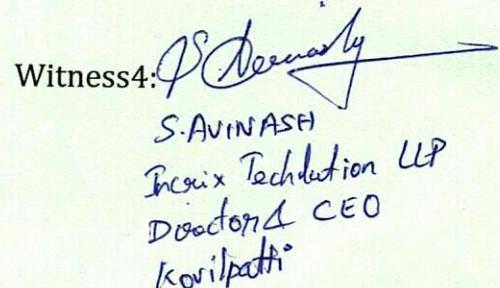 Witness4:
S.AVINASH
Incrix Techlution LLP
Director & CEO
Kovilpatti